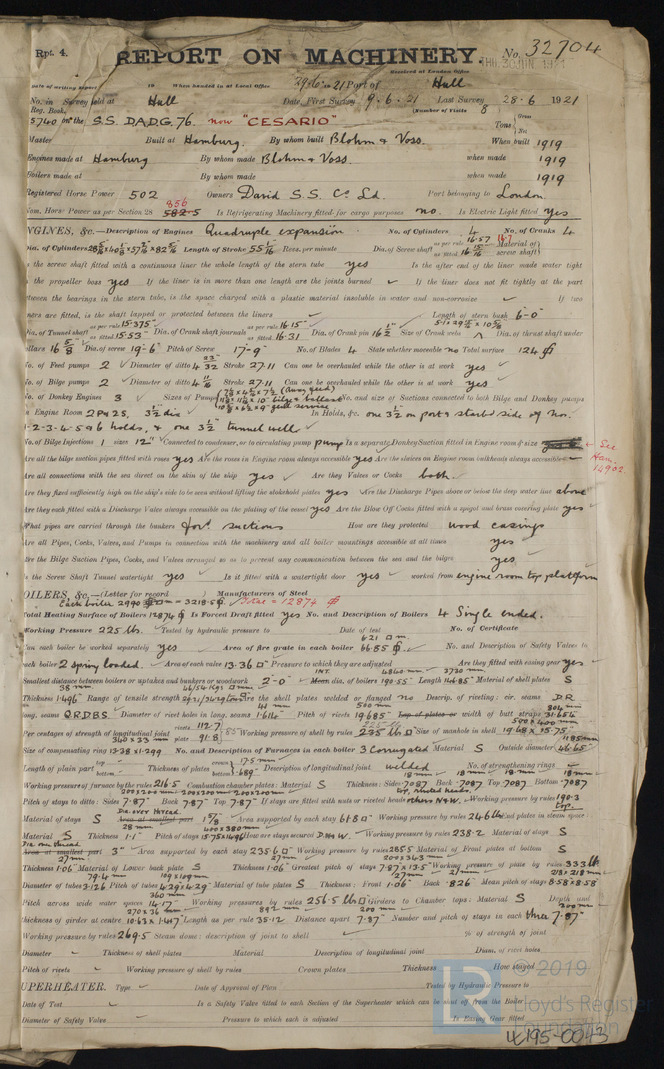 Rpt. 4.
REPORT ON MACHINERY.
No. 32704
THU. 30 JUN 1921
Received at London Office
Date of writing Report 19 When handed in at Local Office 29.6.21 Port of Hull
No. in Survey held at Hull Date, First Survey 9.6.21 Last Survey 28-6 1921
Reg. Book. (Number of Visits 8
5740 on the S.S. D.A.D.G. 76. now "CESARIO" Tons Gross Net
Master Built at Hamburg. By whom built Blohm & Voss. When built 1919
Engines made at Hamburg By whom made Blohm & Voss. when made 1919
Boilers made at By whom made when made 1919
Registered Horse Power 502 Owners David S.S. Co Ld. Port belonging to London.
856
Nom. Horse Power as per Section 28 582.5 Is Refrigerating Machinery fitted for cargo purposes no. Is Electric Light fitted yes
ENGINES, &c.—Description of Engines Quadruple expansion. No. of Cylinders 4 No. of Cranks 4
Dia. of Cylinders Length of Stroke 55 1/16 Revs. per minute Dia. of Screw shaft as per rule 16.57 as fitted Material of screw shaft
Is the screw shaft fitted with a continuous liner the whole length of the stern tube yes Is the after end of the liner made water tight
in the propeller boss yes If the liner is in more than one length are the joints burned If the liner does not fit tightly at the part
between the bearings in the stern tube, is the space charged with a plastic material insoluble in water and non-corrosive If two
liners are fitted, is the shaft lapped or protected between the liners Length of stern bush 6'-0"
Dia. of Tunnel shaft as per rule 15.375" as fitted 15.53" Dia. of Crank shaft journals as per rule 16.15" as fitted 16.31 Dia. of Crank pin 16 1/2 Size of Crank webs Dia. of thrust shaft under
collars 16 5/8 Dia. of screw 19'-6" Pitch of Screw 17'-9" No. of Blades 4 State whether moveable no Total surface 124
No. of Feed pumps 2 Diameter of ditto 4 Stroke 27.11 Can one be overhauled while the other is at work yes
No. of Bilge pumps 2 Diameter of ditto 4 Stroke 27.11 Can one be overhauled while the other is at work yes
No. of Donkey Engines 3 Sizes of Pumps No. and size of Suctions connected to both Bilge and Donkey pumps
In Engine Room In Holds, &c. one 3 1/2" on port & starbd side of No.
1-2-3-4-5&6 holds, & one 3 1/2" tunnel well
No. of Bilge Injections 1 sizes 12" Connected to condenser, or to circulating pump pump Is a separate Donkey Suction fitted in Engine room & size
See Ham. 14902.
Are all the bilge suction pipes fitted with roses yes Are the roses in Engine room always accessible yes Are the sluices on Engine room bulkheads always accessible
Are all connections with the sea direct on the skin of the ship yes Are they Valves or Cocks both.
Are they fixed sufficiently high on the ship's side to be seen without lifting the stokehold plates yes Are the Discharge Pipes above or below the deep water line above
Are they each fitted with a Discharge Valve always accessible on the plating of the vessel yes Are the Blow Off Cocks fitted with a spigot and brass covering plate yes
What pipes are carried through the bunkers forwd. suctions How are they protected wood casings
Are all Pipes, Cocks, Valves, and Pumps in connection with the machinery and all boiler mountings accessible at all times yes
Are the Bilge Suction Pipes, Cocks, and Valves arranged so as to prevent any communication between the sea and the bilges yes
Is the Screw Shaft Tunnel watertight yes Is it fitted with a watertight door yes worked from engine room top platform
BOILERS, &c.—(Letter for record ) Manufacturers of Steel
Each boiler 2990 = 3218.5 Total = 12874
Total Heating Surface of Boilers 12874 Is Forced Draft fitted yes No. and Description of Boilers 4 Single ended.
Working Pressure 225 lbs. Tested by hydraulic pressure to Date of test No. of Certificate
Can each boiler be worked separately yes Area of fire grate in each boiler 66.85 No. and Description of Safety Valves to
each boiler 2 spring loaded. Area of each valve 13.36 Pressure to which they are adjusted Are they fitted with easing gear yes
Smallest distance between boilers or uptakes and bunkers or woodwork 2'-0" dia. of boilers 190.55 Length 146.85 Material of shell plates S
Thickness 1.496 Range of tensile strength Are the shell plates welded or flanged no Descrip. of riveting: cir. seams D.R.
long. seams Q.R.D.B.S. Diameter of rivet holes in long. seams 1.614 Pitch of rivets 19.685 Lap of plates or width of butt straps 31.654
Per centages of strength of longitudinal joint rivets 112.7 plate 91.8 Working pressure of shell by rules Size of manhole in shell 19.68 x 15.75
Size of compensating ring No. and Description of Furnaces in each boiler 3 Corrugated Material S Outside diameter 46.65
Length of plain part top bottom Thickness of plates crown bottom .689 Description of longitudinal joint welded No. of strengthening rings
Working pressure of furnace by the rules 216.5 Combustion chamber plates: Material S Thickness: Sides .7087 Back .7087 Top .7087 Bottom .7087
Pitch of stays to ditto: Sides 7.87 Back 7.87 Top 7.87 If stays are fitted with nuts or riveted heads Working pressure by rules 190.3
Material of stays S Area supported by each stay 61.8 Working pressure by rules 246 lb End plates in steam space
Material S Thickness 1.1 Pitch of stays 15.75 x 14.96 How are stays secured D.N.&W. Working pressure by rules 238.2 Material of stays S
Area at smallest part 3" Area supported by each stay 235.6 Working pressure by rules 285.5 Material of Front plates at bottom S
Thickness 1.06 Material of Lower back plate S Thickness 1.06 Greatest pitch of stays 7.87 x 13.5 Working pressure of plate by rules 333 lb
Diameter of tubes 3.126 Pitch of tubes 4.29 x 4.29 Material of tube plates S Thickness: Front 1.06 Back .826 Mean pitch of stays 8.58 x 8.58
Pitch across wide water spaces 14.17" Working pressures by rules 256.5 lb Girders to Chamber tops: Material S Depth and
thickness of girder at centre 10.63 x 1.417 Length as per rule 35.12 Distance apart 7.87" Number and pitch of stays in each three 7.87"
Working pressure by rules 269.5 Steam dome: description of joint to shell % of strength of joint
Diameter Thickness of shell plates Material Description of longitudinal joint Diam. of rivet holes
Pitch of rivets Working pressure of shell by rules Crown plates Thickness How stayed
SUPERHEATER. Type Date of Approval of Plan Tested by Hydraulic Pressure to
Date of Test Is a Safety Valve fitted to each Section of the Superheater which can be shut off from the Boiler
Diameter of Safety Valve Pressure to which each is adjusted Is Easing Gear fitted
LR © 2019
Lloyd's Register
Foundation
W195-0043